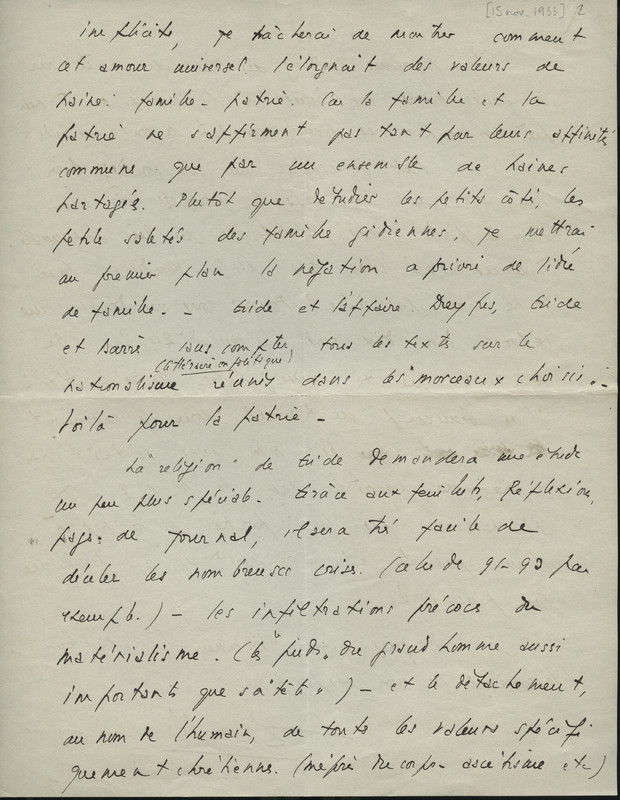 [15 nov. 1933] 2
implicite, je tâcherai de montrer comment
cet amour universel l'éloignait des valeurs de
haine: famille - patrie. Car la famille et la
patrie ne s'affirment pas tant par leurs affinités
commune que par un ensemble de haines
partagées. Plutôt que d'étudier les petits côtés, les
petites saletés des famille gidiennes, je mettrai
au premier plan la négation a priori de l'idée
de famille. - Gide et l'affaire Dreyfus, Gide
et Barrès sans compter tous les textes sur le
(littéraire en politique)
nationalisme réunis dans les "morceaux choisis".
Voilà pour la patrie -
La "religion" de Gide demandera une étude
un peu plus spéciale. Grâce aux feuillets, Réflexions,
pages de journal, il sera très facile de
déceler les nombreuses crises. (Celle de 91-93 par
exemple.) - les infiltrations précoces du
matérialisme. (les "pieds" du grand homme aussi
importants que sa "tête") - et le détachement,
au nom de l'humain, de toutes les valeurs spécifi
quement chrétiennes. (mépris du corps - ascétisme etc)